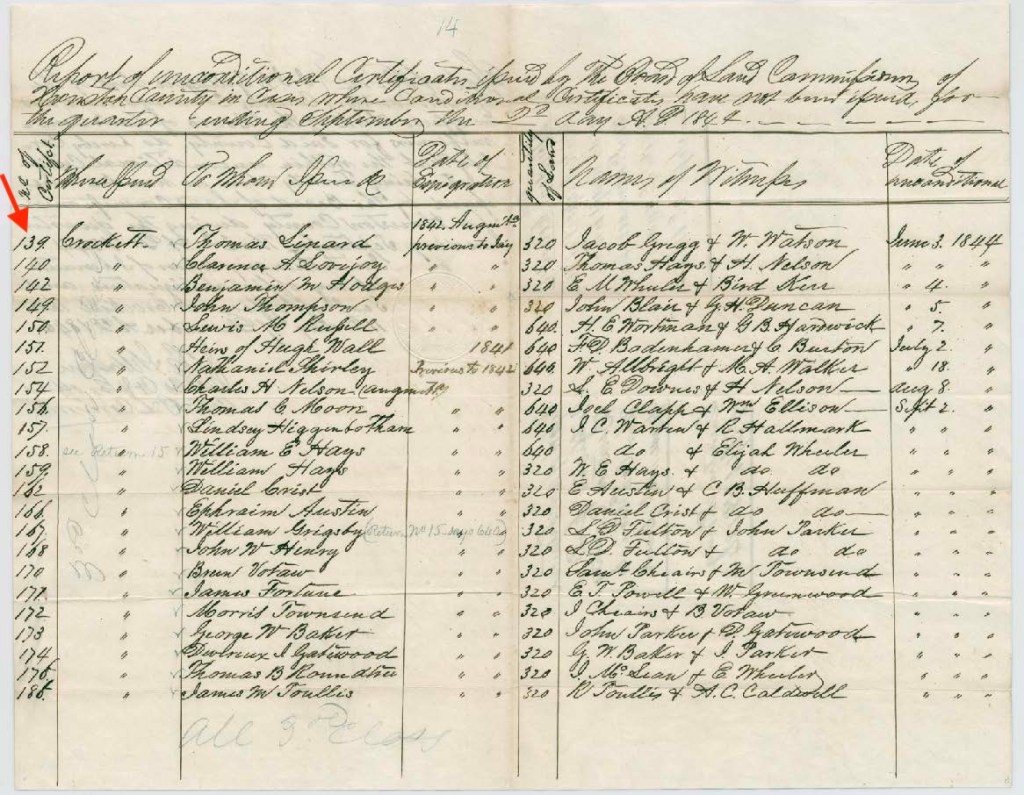 14
Report of unconditional Certificates issued by The Board of Land Commissioners of
Houston County in Texas where Conditional Certificates have not been issued, for
the quarter ending September the 2d day A.D. 1844.
No of Certifct. Where Issued To Whom Issued Date of Emigration quantity of Land Names of Witness Date of unconditional
139. Crockett Thomas Linard 1842. August previous to day 320 Jacob Grigg & W. Watson June 3. 1844
140. " Clarence A Lovejoy " " 320 Thomas Hays & H. Nelson " " "
142 " Benjamin M Hodges " " 320 E M Wheeler & Bird Kerr " 4. "
149. " John Thompson " " 320 John Blair & G H Duncan " 5. "
150. " Lewis Mc Russell " " 640. H. E Wortman & G B Hardwick " 7. "
151. " Heirs of Hugh Wall 1841 640 F D Bodenhamer & C Burton July 2. "
152 " Nathaniel Shirley Previous to 1842 640. W. Albright & M. A. Walker " 18. "
154 " Charles H Nelson (august 320 L. E Downes & H Nelson Aug 8. "
156. " Thomas C Moon " " 640 Joel Clapp & Wm Ellison Sept 2. "
157. " Lindsey Higginbotham " " 640 J. C. Warten & R Hallmark " " "
158. see Return 15 William E Hays " " 640 do & Elijah Wheeler " " "
159. " William Hays " " 320 W. E Hays & do do " " "
162 " Daniel Crist " " 320 E Austin & C B. Huffman " " "
166 " Ephraim Austin " " 320 Daniel Crist & do do " " "
167. " William Grigsby (Return No 15 says 640) " 320 S. D Fulton & John Parker " " "
168 " John W Henry " " 320 S. D. Fulton & do do " " "
170 " Breen Votaw " " 320 Saml Cheairs & M Townsend " " "
171. " James Fortune " " 320 E. T. Powell & W. Greenwood " " "
172 " Morris Townsend " " 320 J Cheairs & B Votaw " " "
173 " George W Baker " " 320 John Parker & D. Gatewood " " "
174 " Devereux J Gatewood " " 320 G. W. Baker & J. Parker " " "
178. " Thomas B Roundtree " " 320 J Mc Lean & E Wheeler " " "
185. " James M Toullis " " 320 R Toullis & A. C. Caldwell " " "
All 3rd Class